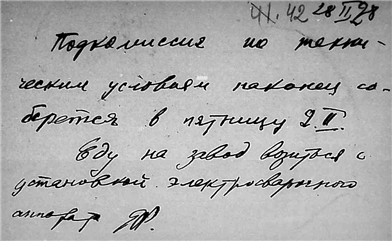 41. 42 28 II 28
Подкомиссия по техни-
ческим условиям наконец со-
берется в пятницу 2 II.
Еду на завод возиться с
установкой электросварочного
аппарат